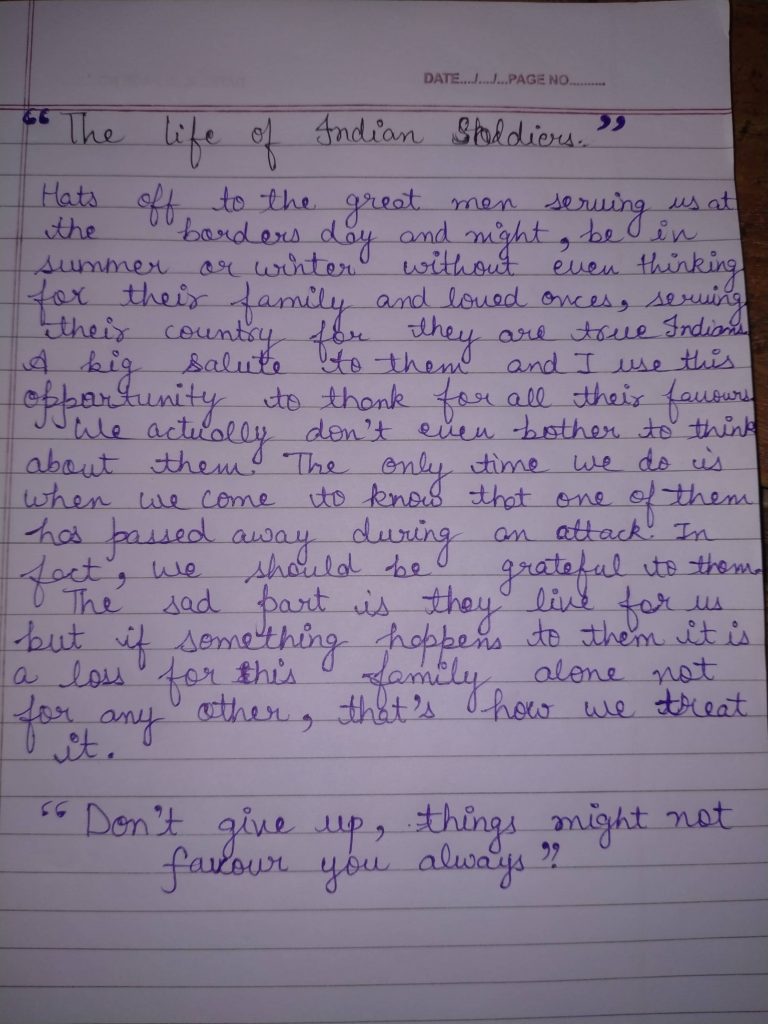 DATE.../.../...PAGE NO..........
“The life of Indian Soldiers.”
Hats off to the great men serving us at
the borders day and night, be in
summer or winter without even thinking
for their family and loved onces, serving
their country for they are true Indians.
A big salute to them and I use this
opportunity to thank for all their favours.
We actually don't even bother to think
about them. The only time we do is
when we come to know that one of them
has passed away during an attack. In
fact, we should be grateful to them.
The sad part is they live for us
but if something happens to them it is
a loss for this family alone not
for any other, that's how we treat
it.
“Don't give up, things might not
favour you always”